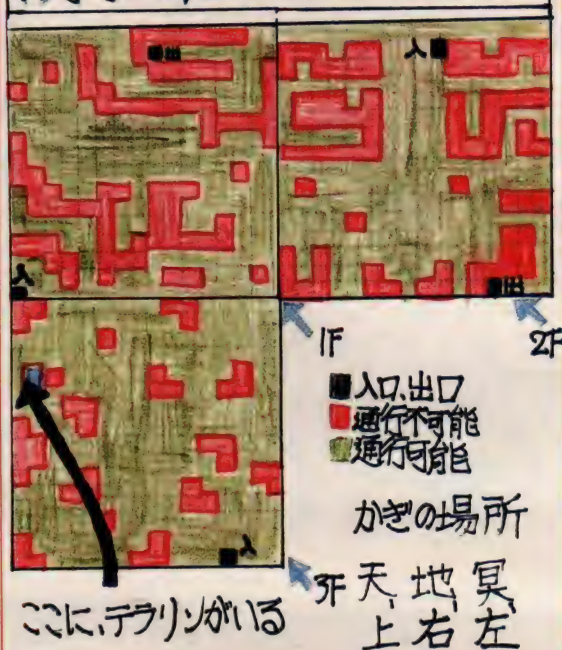 出
入
入
1F
2F
入口、出口
通行不可能
通行可能
かぎの場所
入
3F
天、地、冥、
上 右 左
ここに、テラリンがいる